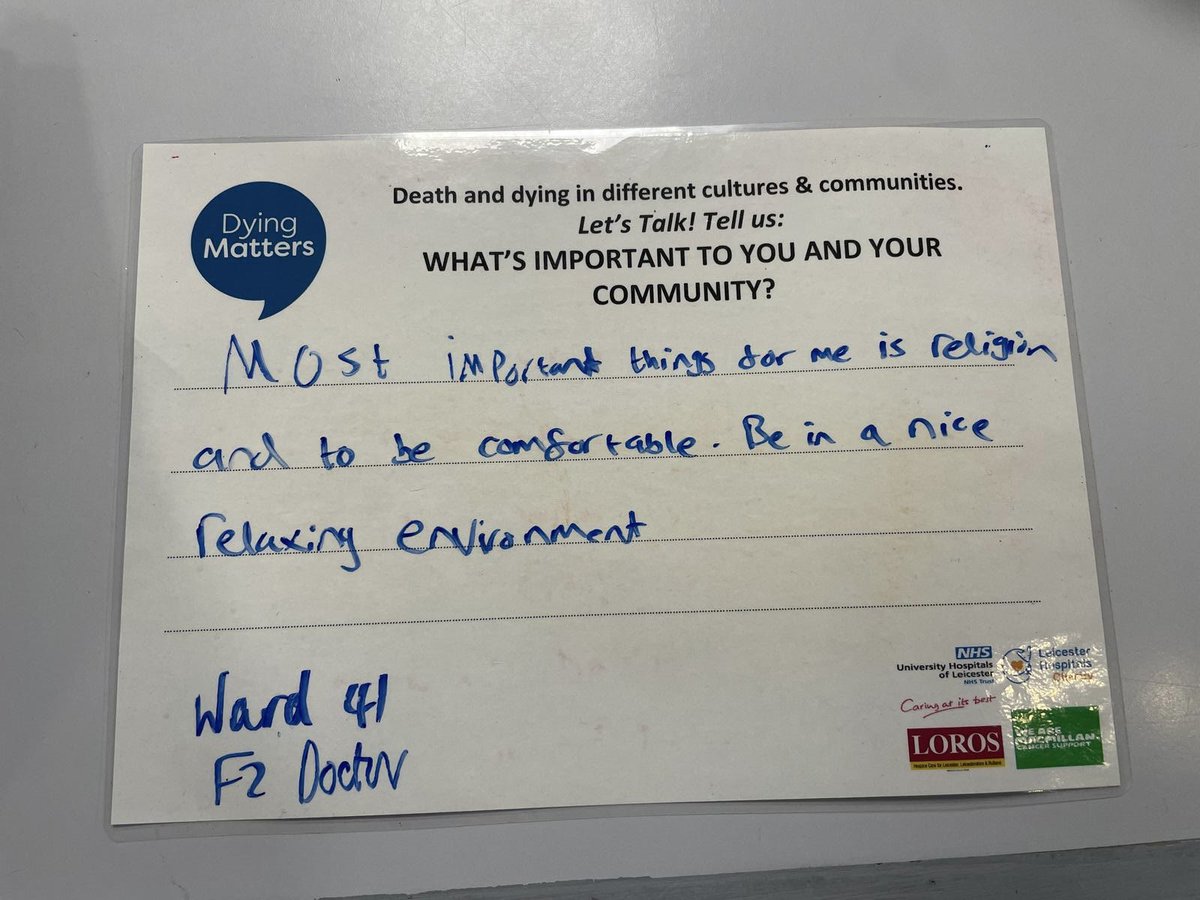 Dying
Matters
Death and dying in different cultures & communities.
Let's Talk! Tell us:
WHAT'S IMPORTANT TO YOU AND YOUR
COMMUNITY?
Most important things for me is religion
and to be comfortable. Be in a nice
relaxing environment
Ward 41
F2 Doctor
NHS
University Hospitals
of Leicester
NHS Trust
Leicester
Hospitals
Charity
Caring at its best
LOROS
Hospice Care for Leicester, Leicestershire & Rutland
WE ARE
MACMILLAN.
CANCER SUPPORT